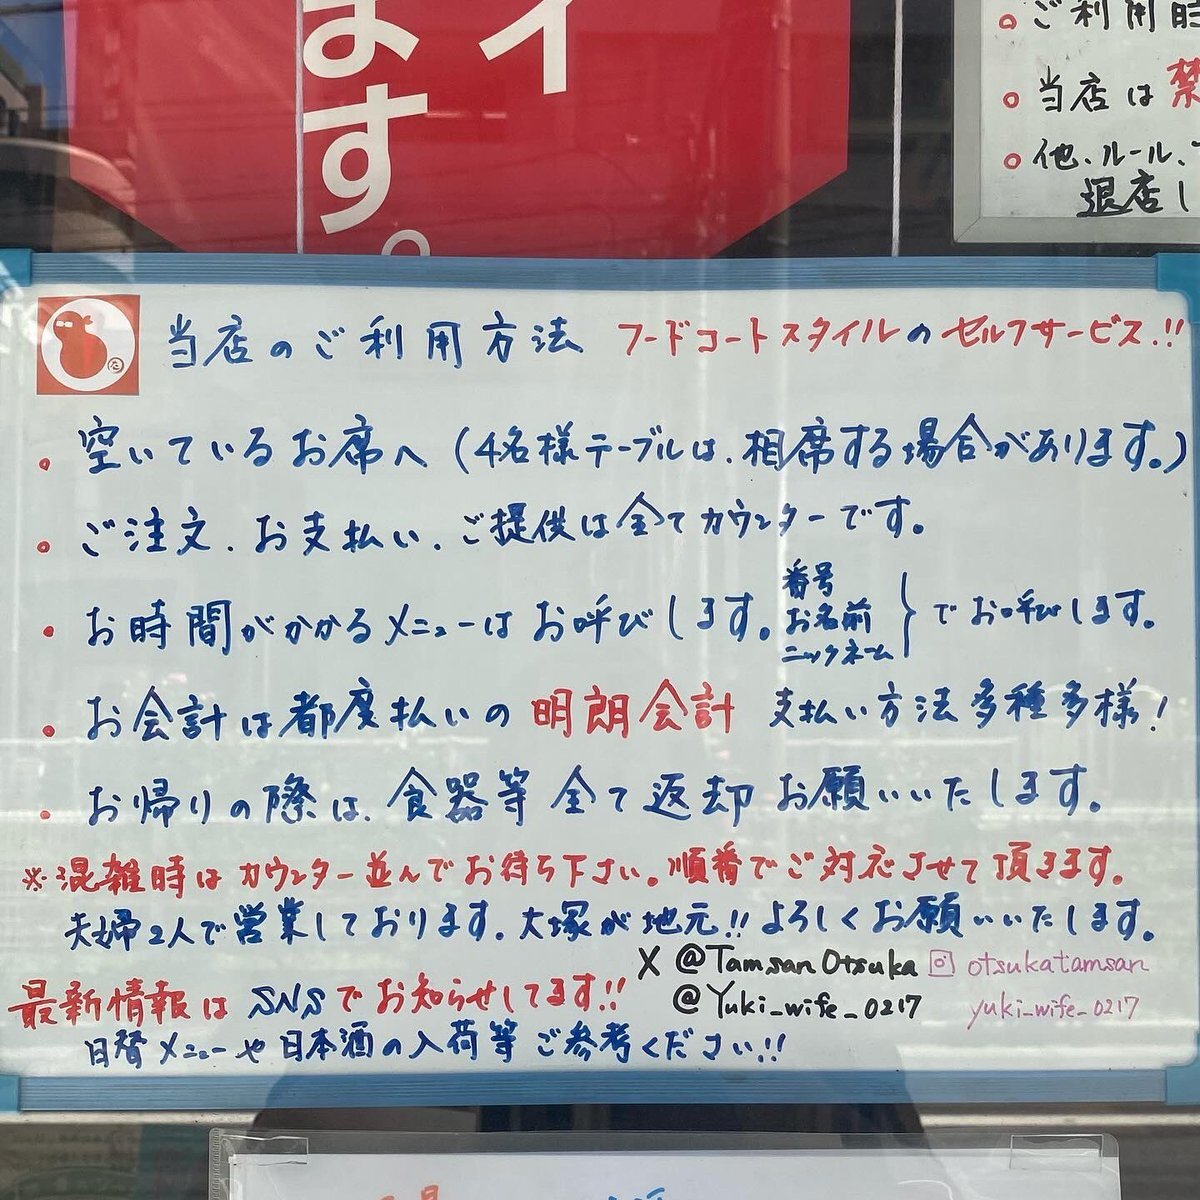 イ
ます。
ご利用時
当店は禁
他、ルール、
退店し
た
当店のご利用方法 フードコートスタイルのセルフサービス!!
・空いているお席へ(4名様テーブルは、相席する場合があります。)
・ご注文、お支払い、ご提供は全てカウンターです。
・お時間がかかるメニューはお呼びします。番号 お名前 ニックネーム}でお呼びします。
・お会計は都度払いの明朗会計 支払い方法多種多様!
・お帰りの際は、食器等全て返却お願いいたします。
※混雑時はカウンター並んでお待ち下さい。順番でご対応させて頂きます。
夫婦2人で営業しております。大塚が地元!!よろしくお願いいたします。
X @TamsanOtsuka otsukatamsan
@Yuki_wife_0217 yuki_wife_0217
最新情報はSNSでお知らせしてます!!
日替メニューや日本酒の入荷等ご参考ください!!